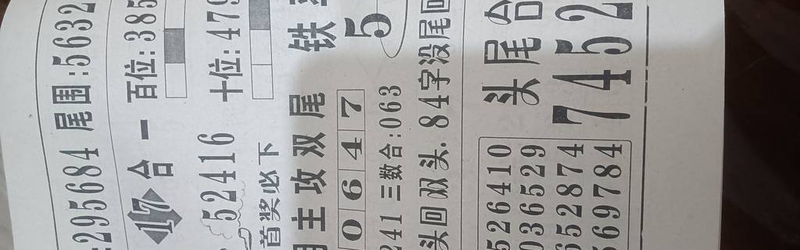 295684 尾围:5632
17 合一 百位:385
52416 十位:479
首奖必下
主攻双尾 铁
0647 5
241三数合:063
头回双头.84字没尾回
头尾合
7452
526410
036529
652874
69784